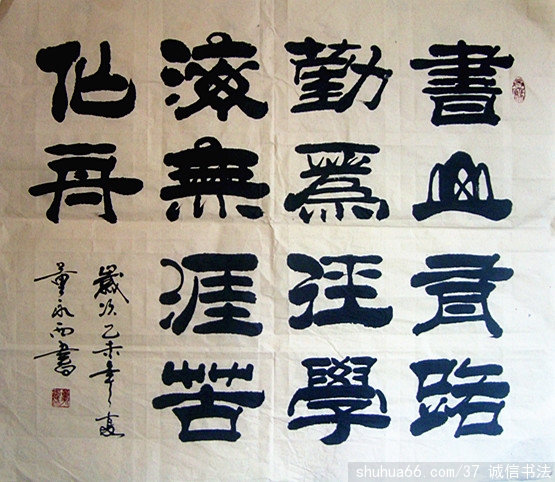 書山有路
勤爲徑學
海無涯苦
作舟
歲次乙未年夏
永書
shuhua66.com/37 诚信书法